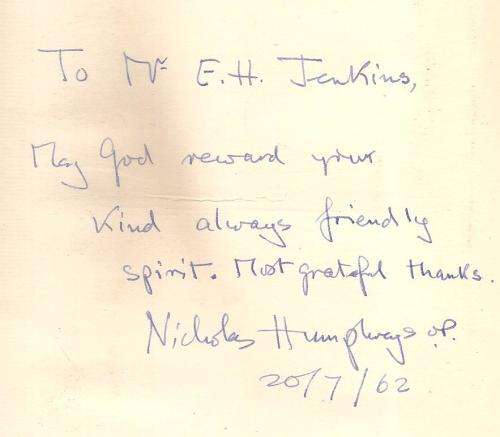 To Mr E.H. Jenkins,
May God reward your
kind always friendly
spirit. Most grateful thanks.
Nicholas Humphreys o.p.
20/7/62